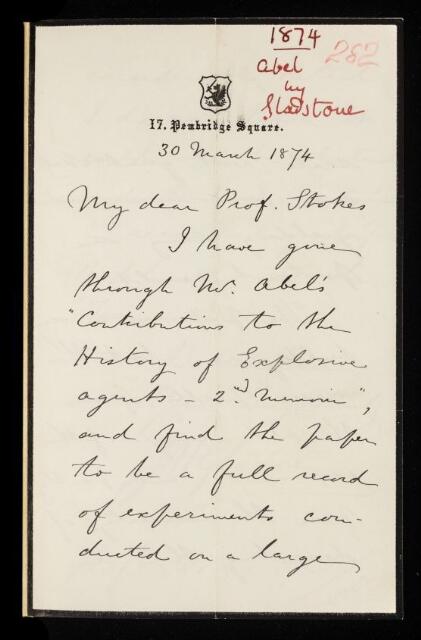 1874
282
Abel
by
Gladstone
17, Pembridge Square.
30 March 1874
My dear Prof. Stokes
I have gone
through Mr. Abel's
"Contributions to the
History of Explosive
agents - 2nd. Memoir",
and find the paper
to be a full record
of experiments con-
ducted on a large